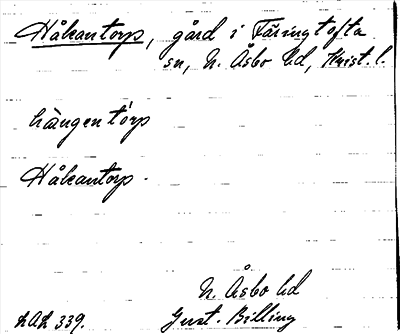 Håkantorp, gård i Färingtofta
sn, N. Åsbo hd, Krist. l.
hången tórp
Håkantorp.
N. Åsbo hd
LAL 339. Gust. Billing